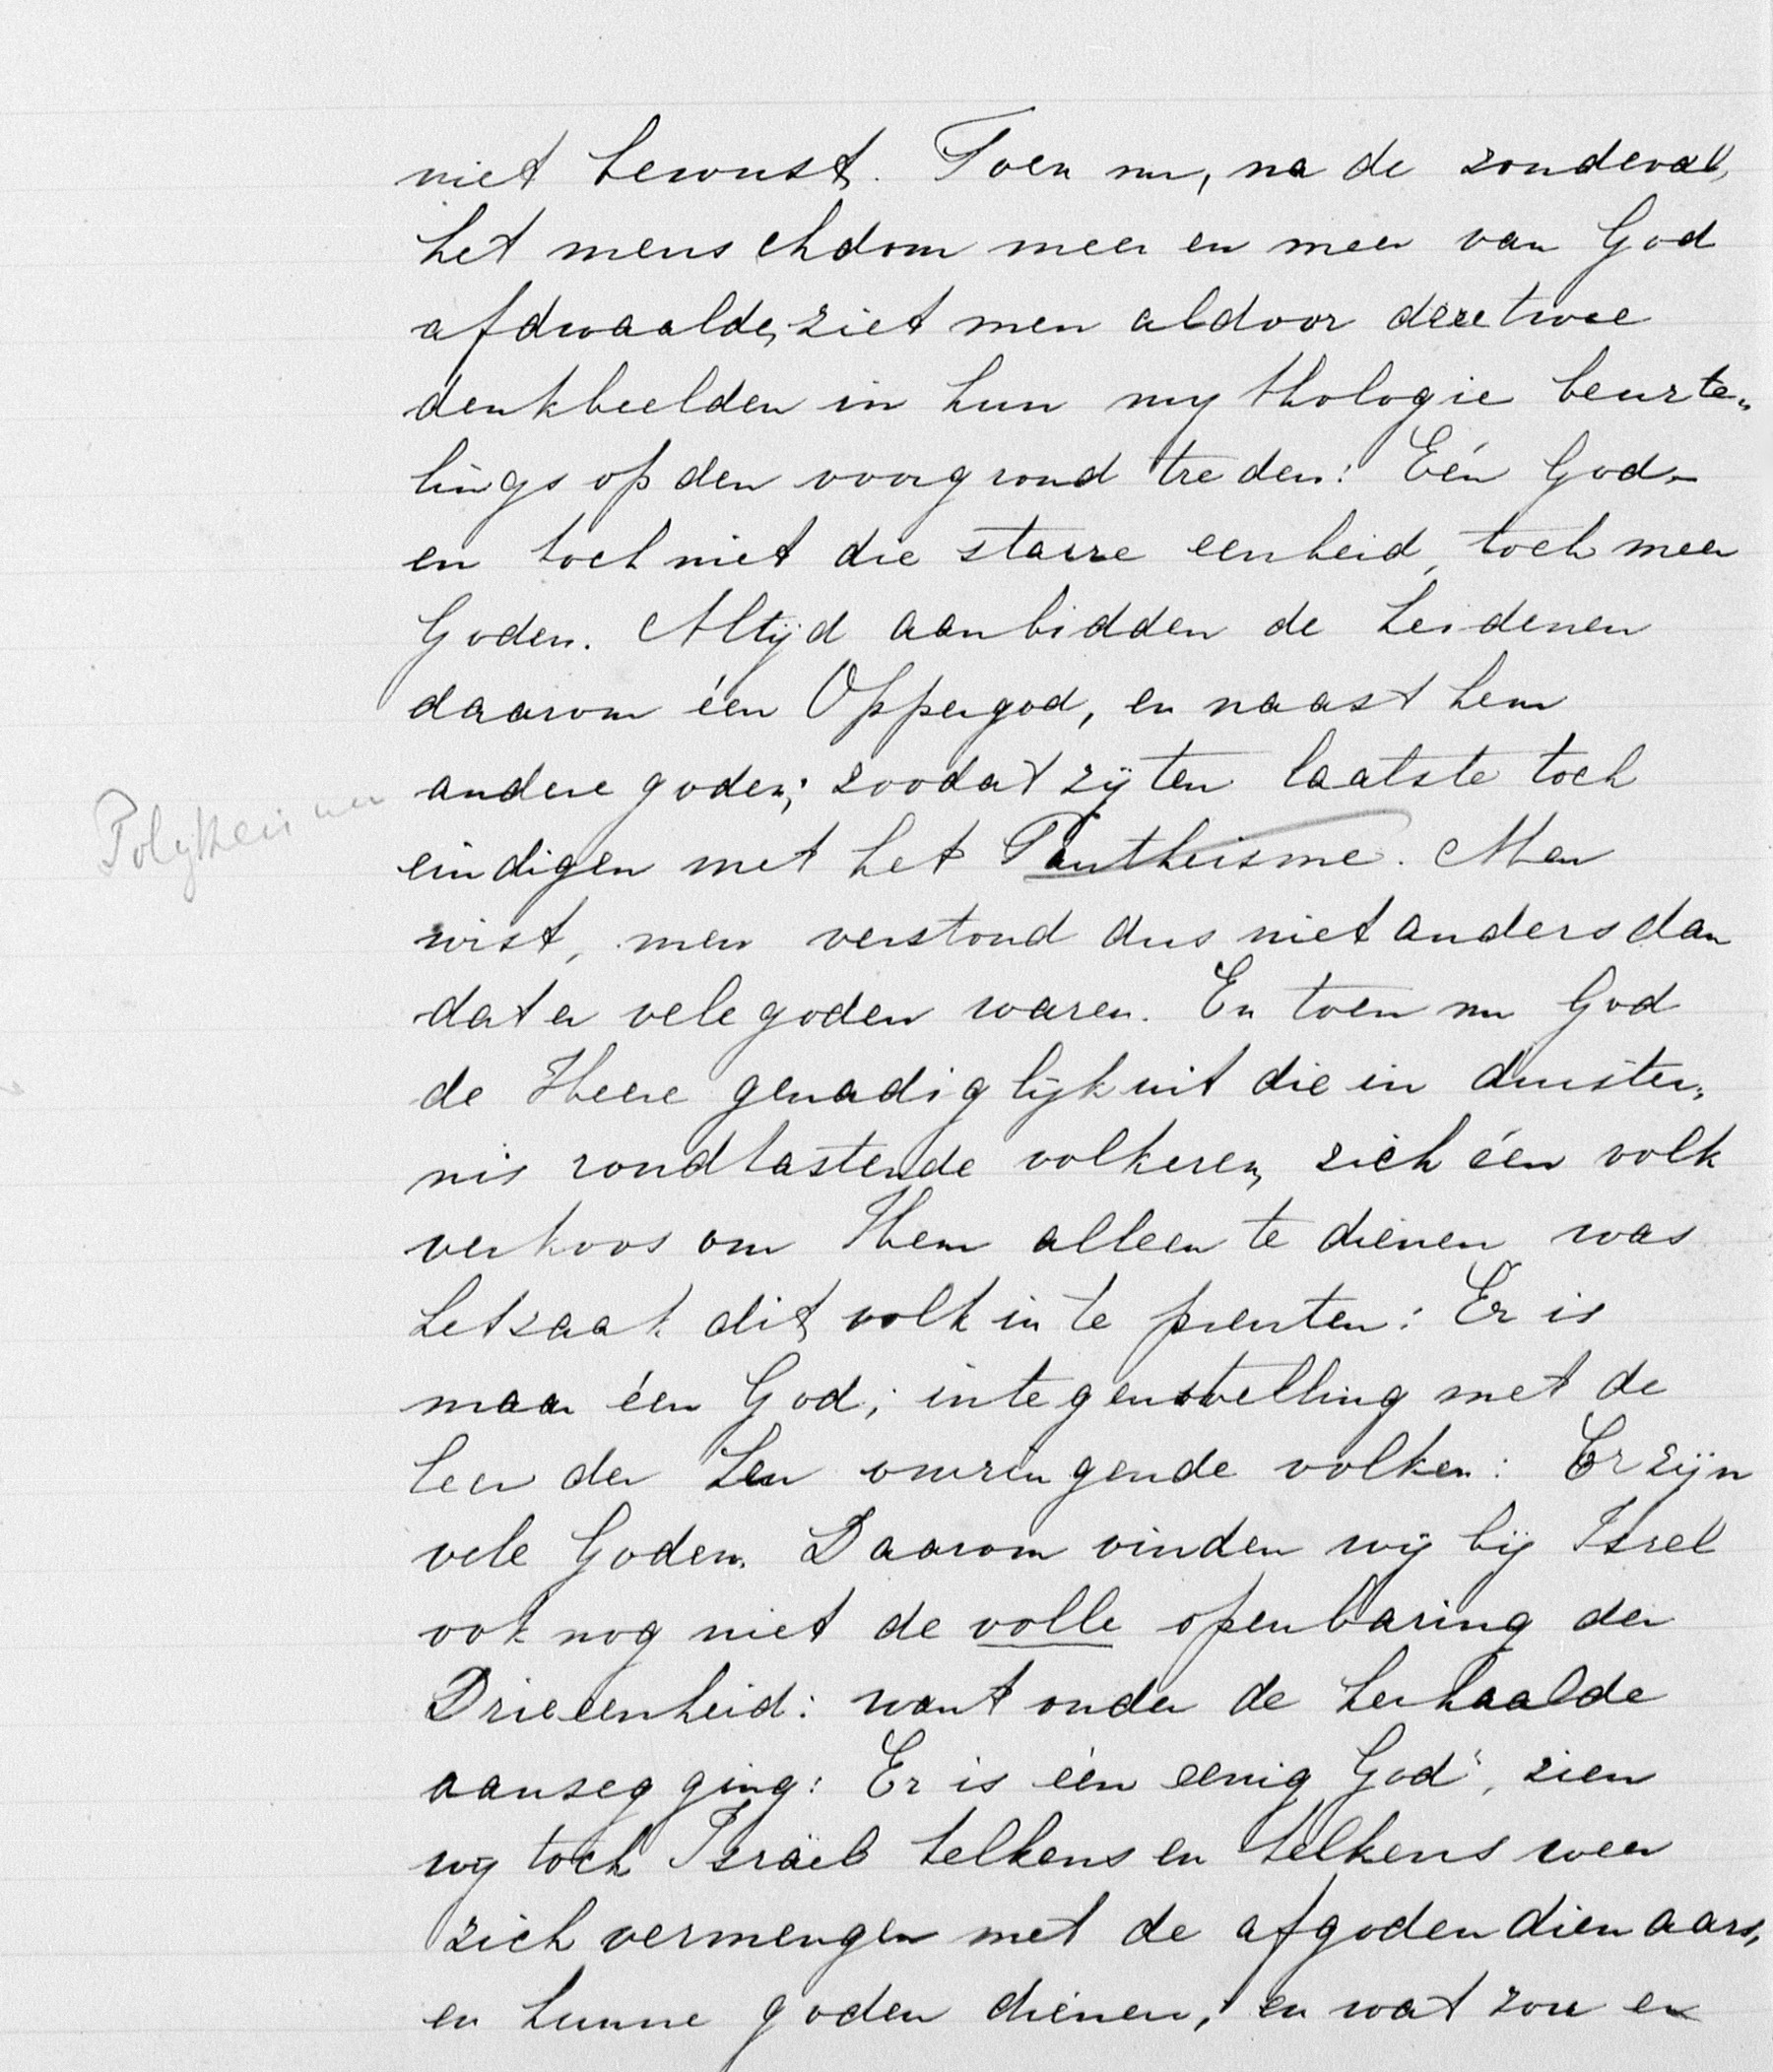 niet bewust. Toen nu, na de zondeval,
het menschdom meer en meer van God
afdwaalde, ziet men aldoor deze twee
denkbeelden in hun mythologie beurte„
lings op den voorgrond treden: Eén God
en toch niet die starre eenheid, toch meer
Goden. Altijd aanbidden de heidenen
daarom één Oppergod, en naast hem
andere goden; zoodat zij ten laatste toch
Polytheisme
eindigen met het Pantheisme. Men
wist, men verstond dus niet anders dan
dat er vele goden waren. En toen nu God
de Heere genadiglijk uit die in duister„
nis rondtastende volkeren, zich één volk
verkoos om Hem alleen te dienen was
het zaak dit volk in te prenten: Er is
maar één God; in tegenstelling met de
leer der hen omringende volken: Er zijn
vele Goden. Daarom vinden wij bij Isrel
ook nog niet de volle openbaring der
Drieëenheid: want onder de herhaalde
aanzegging: Er is één eenig God", zien
wij toch Israël telkens en telkens weer
zich vermengen met de afgodendienaars,
en hunne goden dienen; en wat zou er